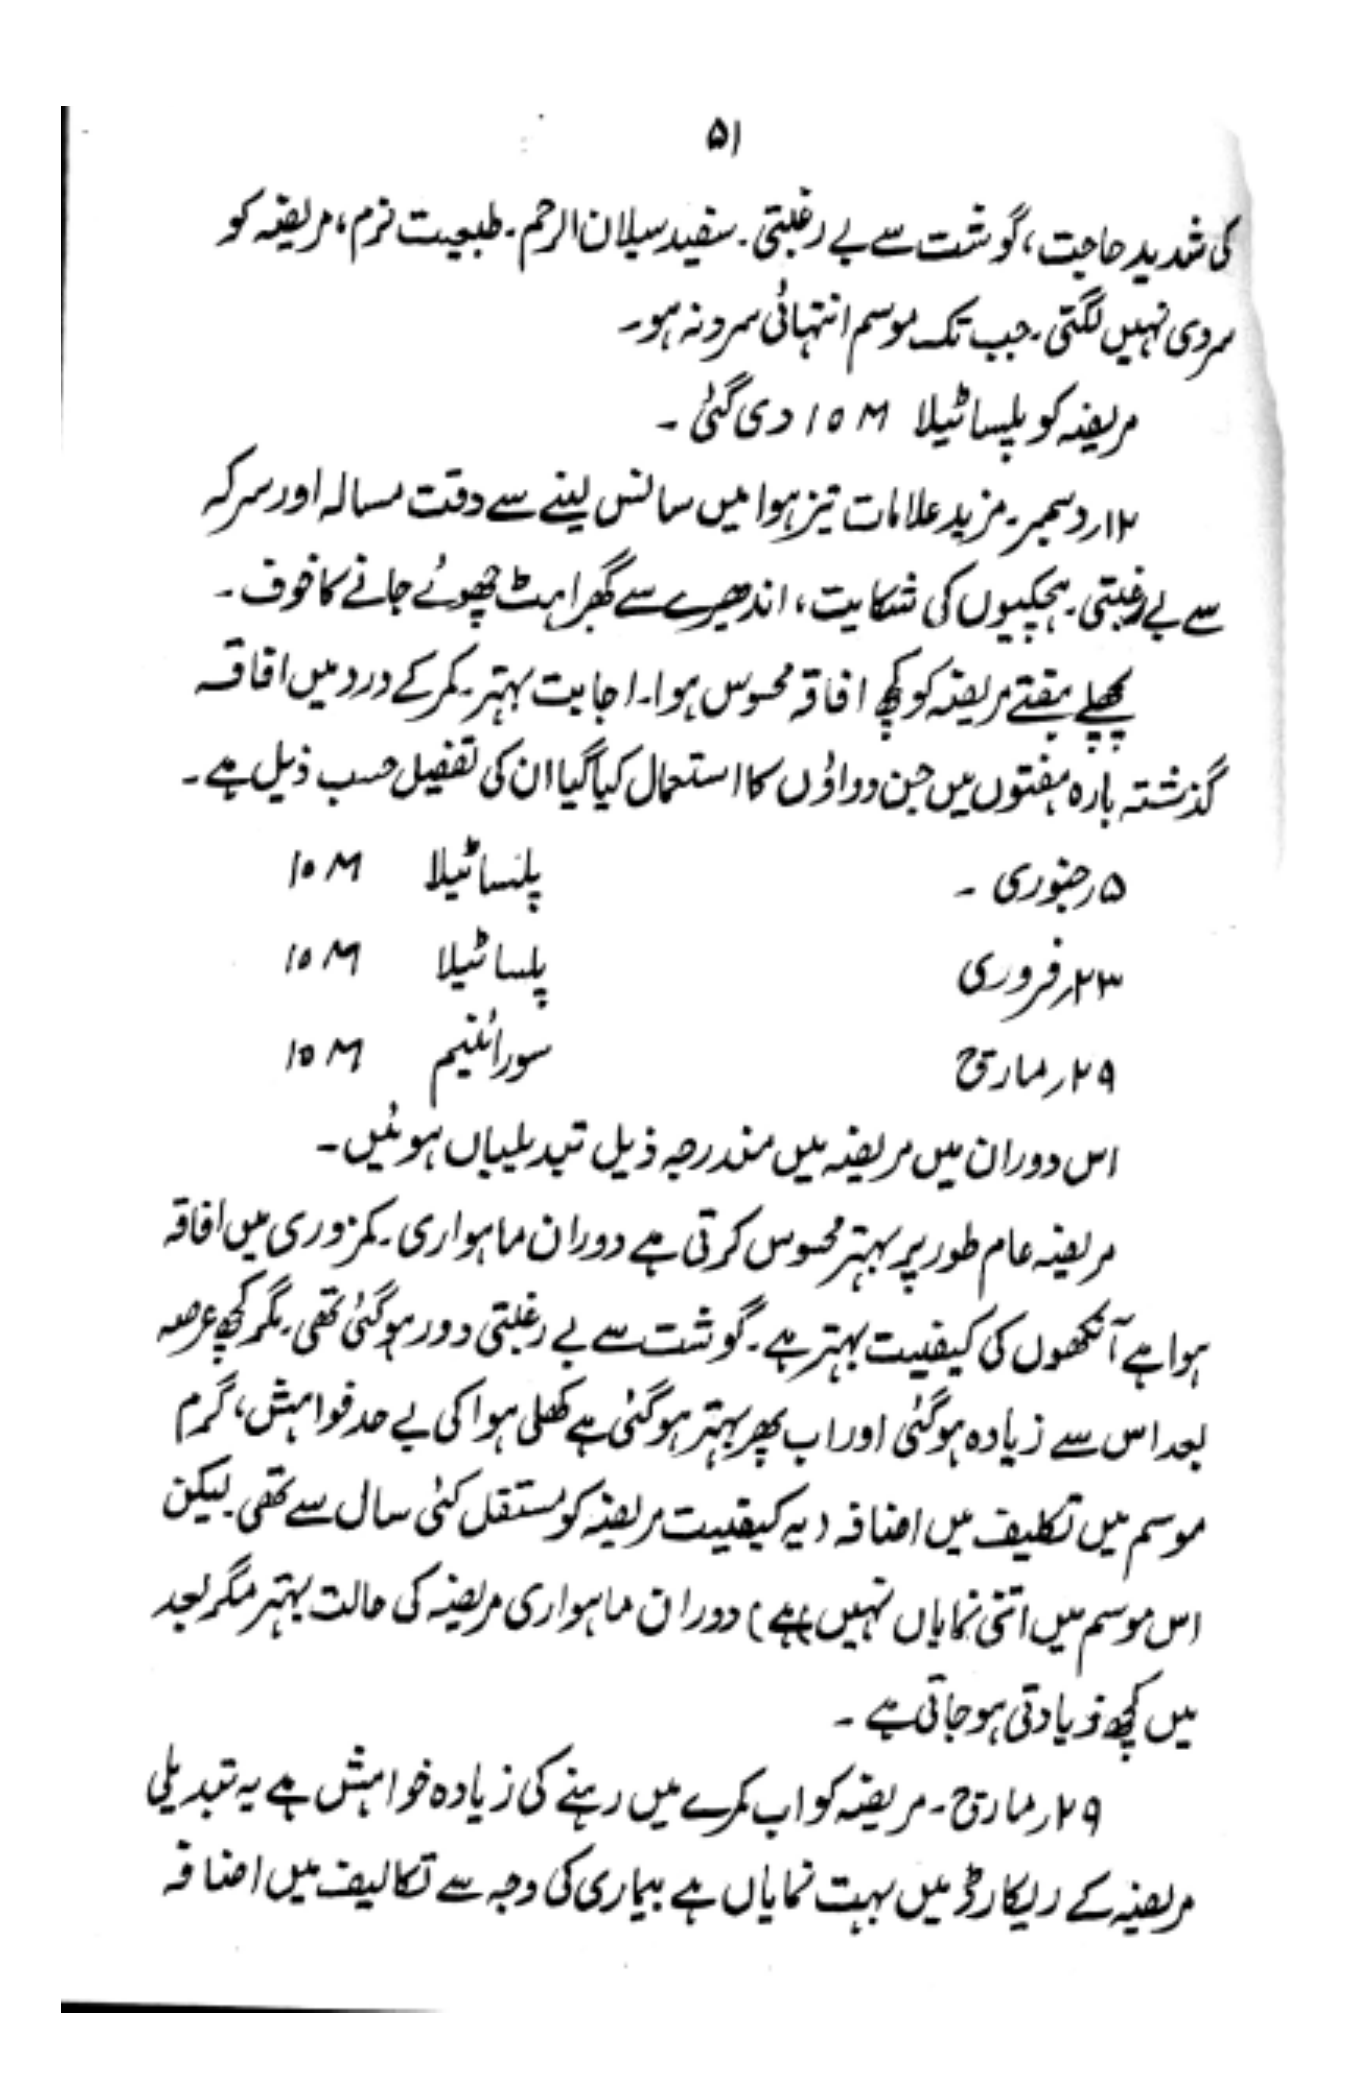 ۵۱
کی شدید حاجت، گوشت سے بے رغبتی۔ سفید سیلان الرحم۔ طبیعت نرم، مریضہ کو
سردی نہیں لگتی۔ جب تک موسم انتہائی سرد نہ ہو۔
مریضہ کو پلساٹیلا 10M دی گئی۔
۱۲؍دسمبر۔ مزید علامات تیز ہوا میں سانس لینے سے دقت مسالہ اور سرکہ
سے بے رغبتی۔ ہچکیوں کی شکایت، اندھیرے سے گھبراہٹ چھوئے جانے کا خوف۔
پچھلے ہفتے مریضہ کو کچھ افاقہ محسوس ہوا۔ اجابت بہتر۔ کمر کے درد میں افاقہ
گذشتہ بارہ ہفتوں میں جن دواؤں کا استعمال کیا گیا ان کی تفصیل حسب ذیل ہے۔
۵؍جنوری ۔ پلساٹیلا 10M
۲۳؍فروری پلساٹیلا 10M
۲۹؍مارچ سورائنیم 10M
اس دوران میں مریضہ میں مندرجہ ذیل تبدیلیاں ہوئیں۔
مریضہ عام طور پر بہتر محسوس کرتی ہے دوران ماہواری۔ کمزوری میں افاقہ
ہوا ہے آنکھوں کی کیفیت بہتر ہے۔ گوشت سے بے رغبتی دور ہوگئی تھی۔ مگر کچھ عرصہ
بعد اس سے زیادہ ہوگئی اور اب پھر بہتر ہوگئی ہے کھلی ہوا کی بے حد خواہش، گرم
موسم میں تکلیف میں اضافہ (یہ کیفیت مریضہ کو مستقل کئی سال سے تھی۔ لیکن
اس موسم میں اتنی نمایاں نہیں ہے) دوران ماہواری مریضہ کی حالت بہتر مگر بعد
میں کچھ زیادتی ہو جاتی ہے۔
۲۹؍مارچ۔ مریضہ کو اب کمرے میں رہنے کی زیادہ خواہش ہے یہ تبدیلی
مریضہ کے ریکارڈ میں بہت نمایاں ہے بیماری کی وجہ سے تکالیف میں اضافہ